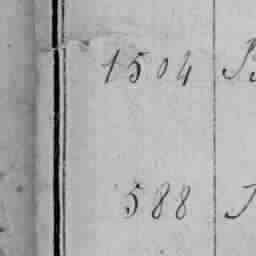 1504
588